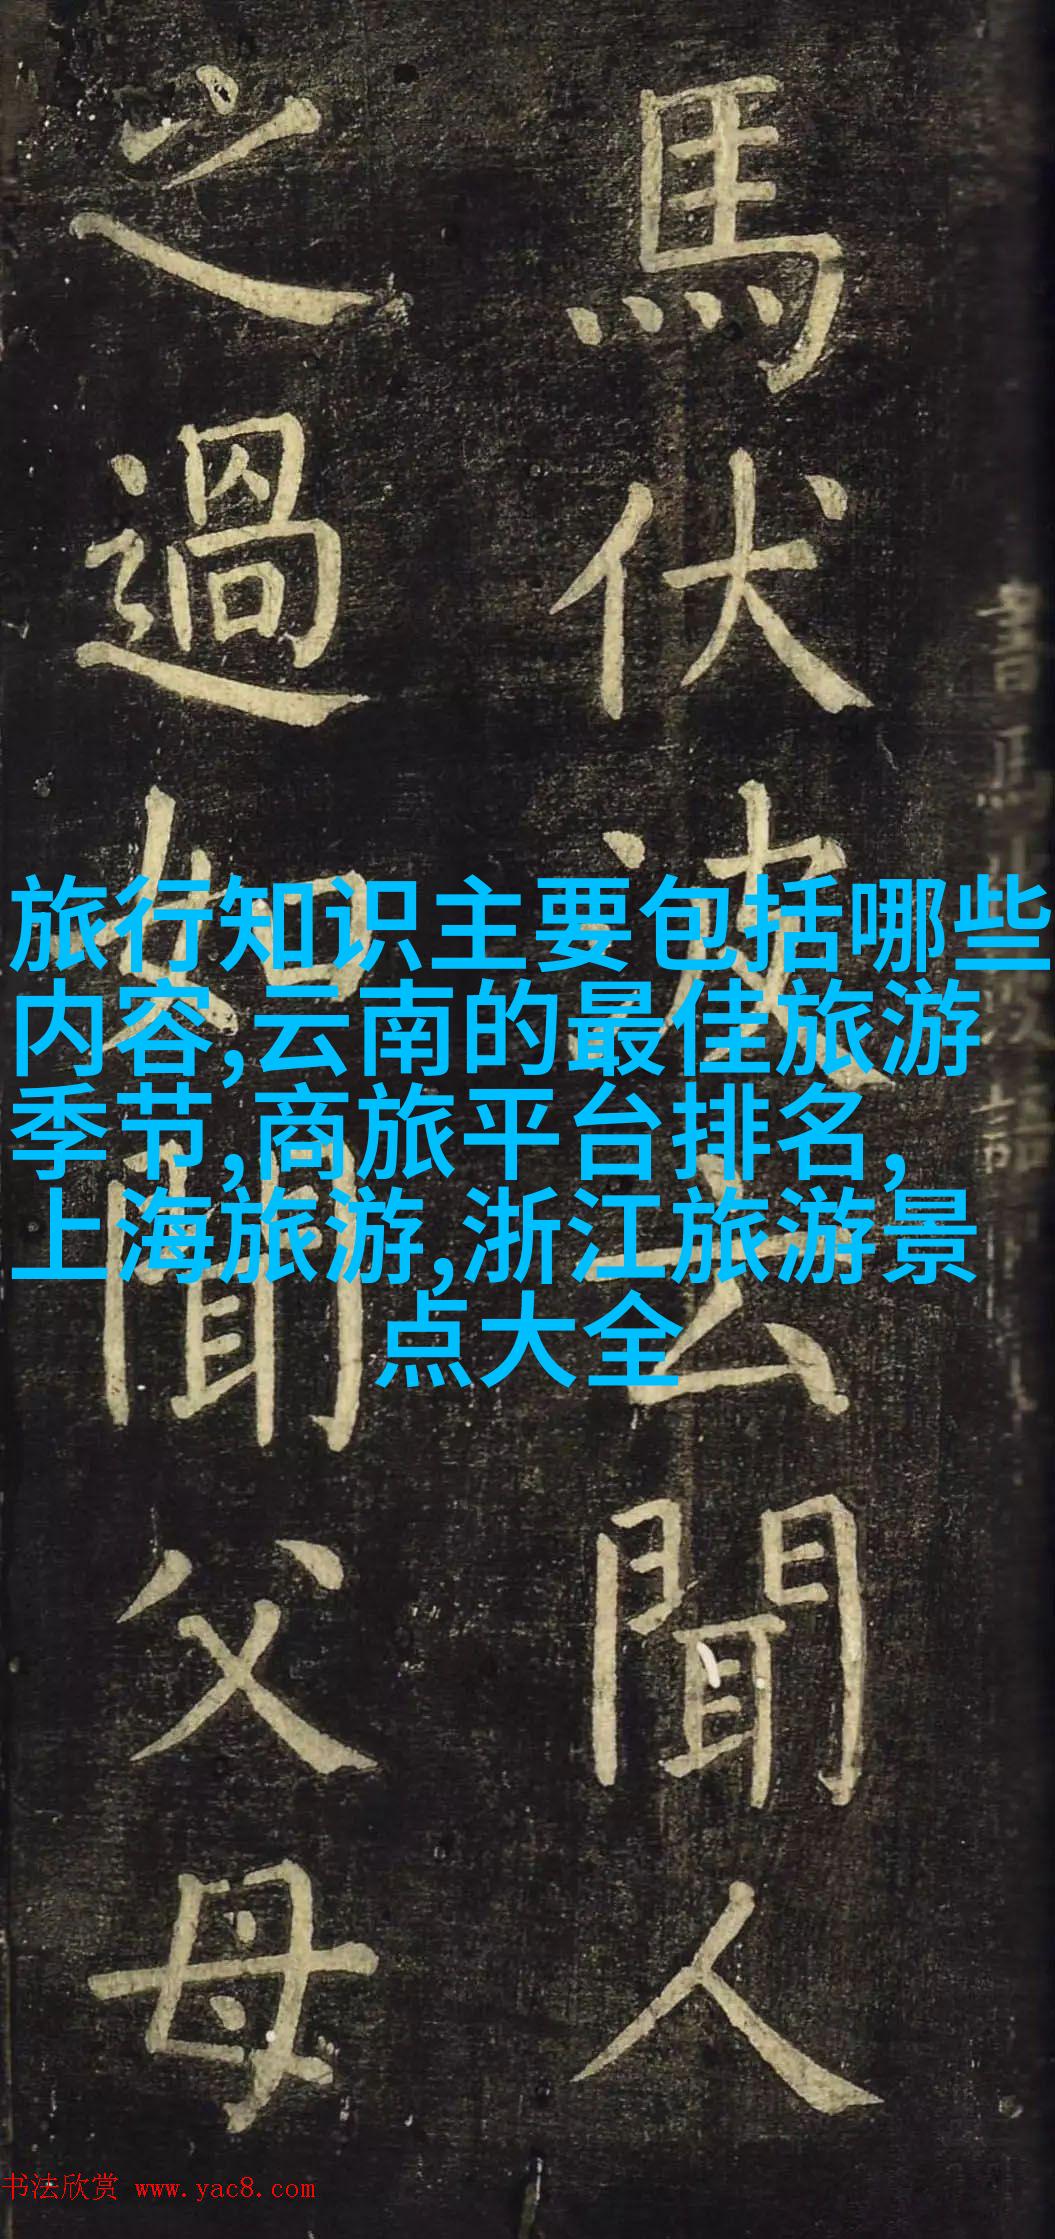 馬伏波云聞人
之過如聞父母
旅行知识主要包括哪些
内容,云南的最佳旅游
季节,商旅平台排名,
上海旅游,浙江旅游景
点大全
书法欣赏 www.yac8.com